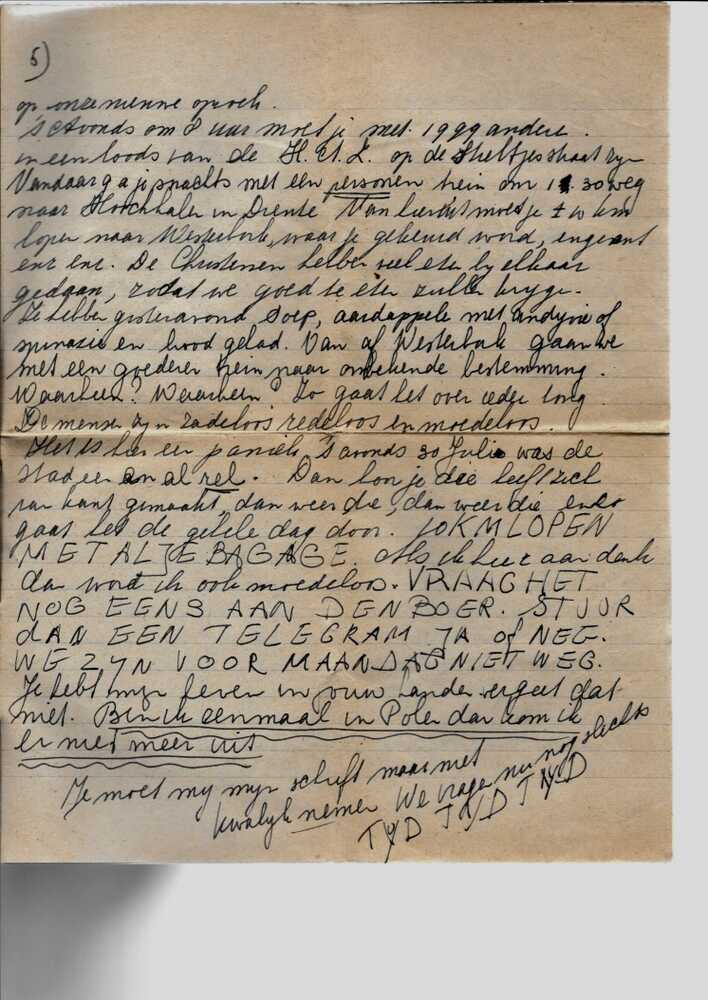 5)
op onze menne oproch.
'sAvonds om 8 uur moet je met 1999 andere
in een loods van de H.A.L. op de Stieltjesstraat zyn
Vandaar ga je snachts met een personen trein om 1.30 weg
naar Hooghhalen in Drente Van hieruit moet je ± 10 km
lopen naar Westerbork, waar je gekeurd word, ingeent
enz enz. De Christenen hebben veel eten by elkaar
gedaan, zodat we goed te eten zullen krygen.
Ze hebben gisteravond soep, aardappele met andyvie of
spinazie en brood gehad. Van af Westerbork gaan we
met een goederen trein naar onbekende bestemming.
Waarheen? Waarheen? Zo gaat het over ieder tong
De mensen zyn radeloos redeloos en moedeloos.
Het is hier een paniek, 's avonds 30 Julie was de
stad een en al rel. Dan hoor je die heeft zich
van kant gemaakt, dan weer die, dan weer die en zo
gaat het de gehele dag door. 10 KM LOPEN
MET AL JE BAGAGE. Als ik hier aan denk
dan word ik ook moedeloos. VRAAG HET
NOG EENS AAN DEN BOER. STUUR
dAN EEN TELEGRAM JA of NEE.
WE ZYN VOOR MAANDAG NIET WEG.
Je hebt mijn leven in jouw handen vergeet dat
niet. Ben ik eenmaal in Polen dan kom ik
er niet meer uit
Je moet my myn schrift maar niet
kwalyk nemen We vragen nu nog slechts
TYD TYD TYD